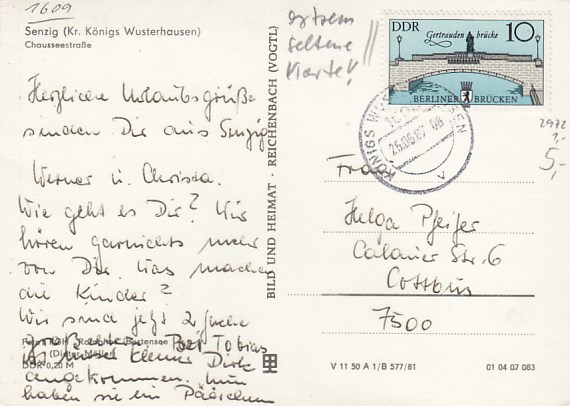 1609
Senzig (Kr. Königs Wusterhausen)
Chausseestraße
Herzliche Urlaubsgrüße
senden Dir aus Senzig
Werner u. Christa.
Wie geht es Dir? Wir
hören garnichts mehr
von Dir. Was machen
die Kinder?
Wir sind jetzt 2 fache
Bei Tobias
ist unser kleiner Dirk
angekommen. Nun
haben sie ein Pärchen
DDR 0,20 M
BILD UND HEIMAT · REICHENBACH (VOGTL)
extrem
seltene
Karte!
DDR
Gertraudenbrücke
10
BERLINER BRÜCKEN
KÖNIGS WUSTERHAUSEN
25.06.87
2972
1,-
5,-
Frau
Helga Pfeifer
Calauer Str. 6
Cottbus
7500
V 11 50 A 1/B 577/81
01 04 07 083